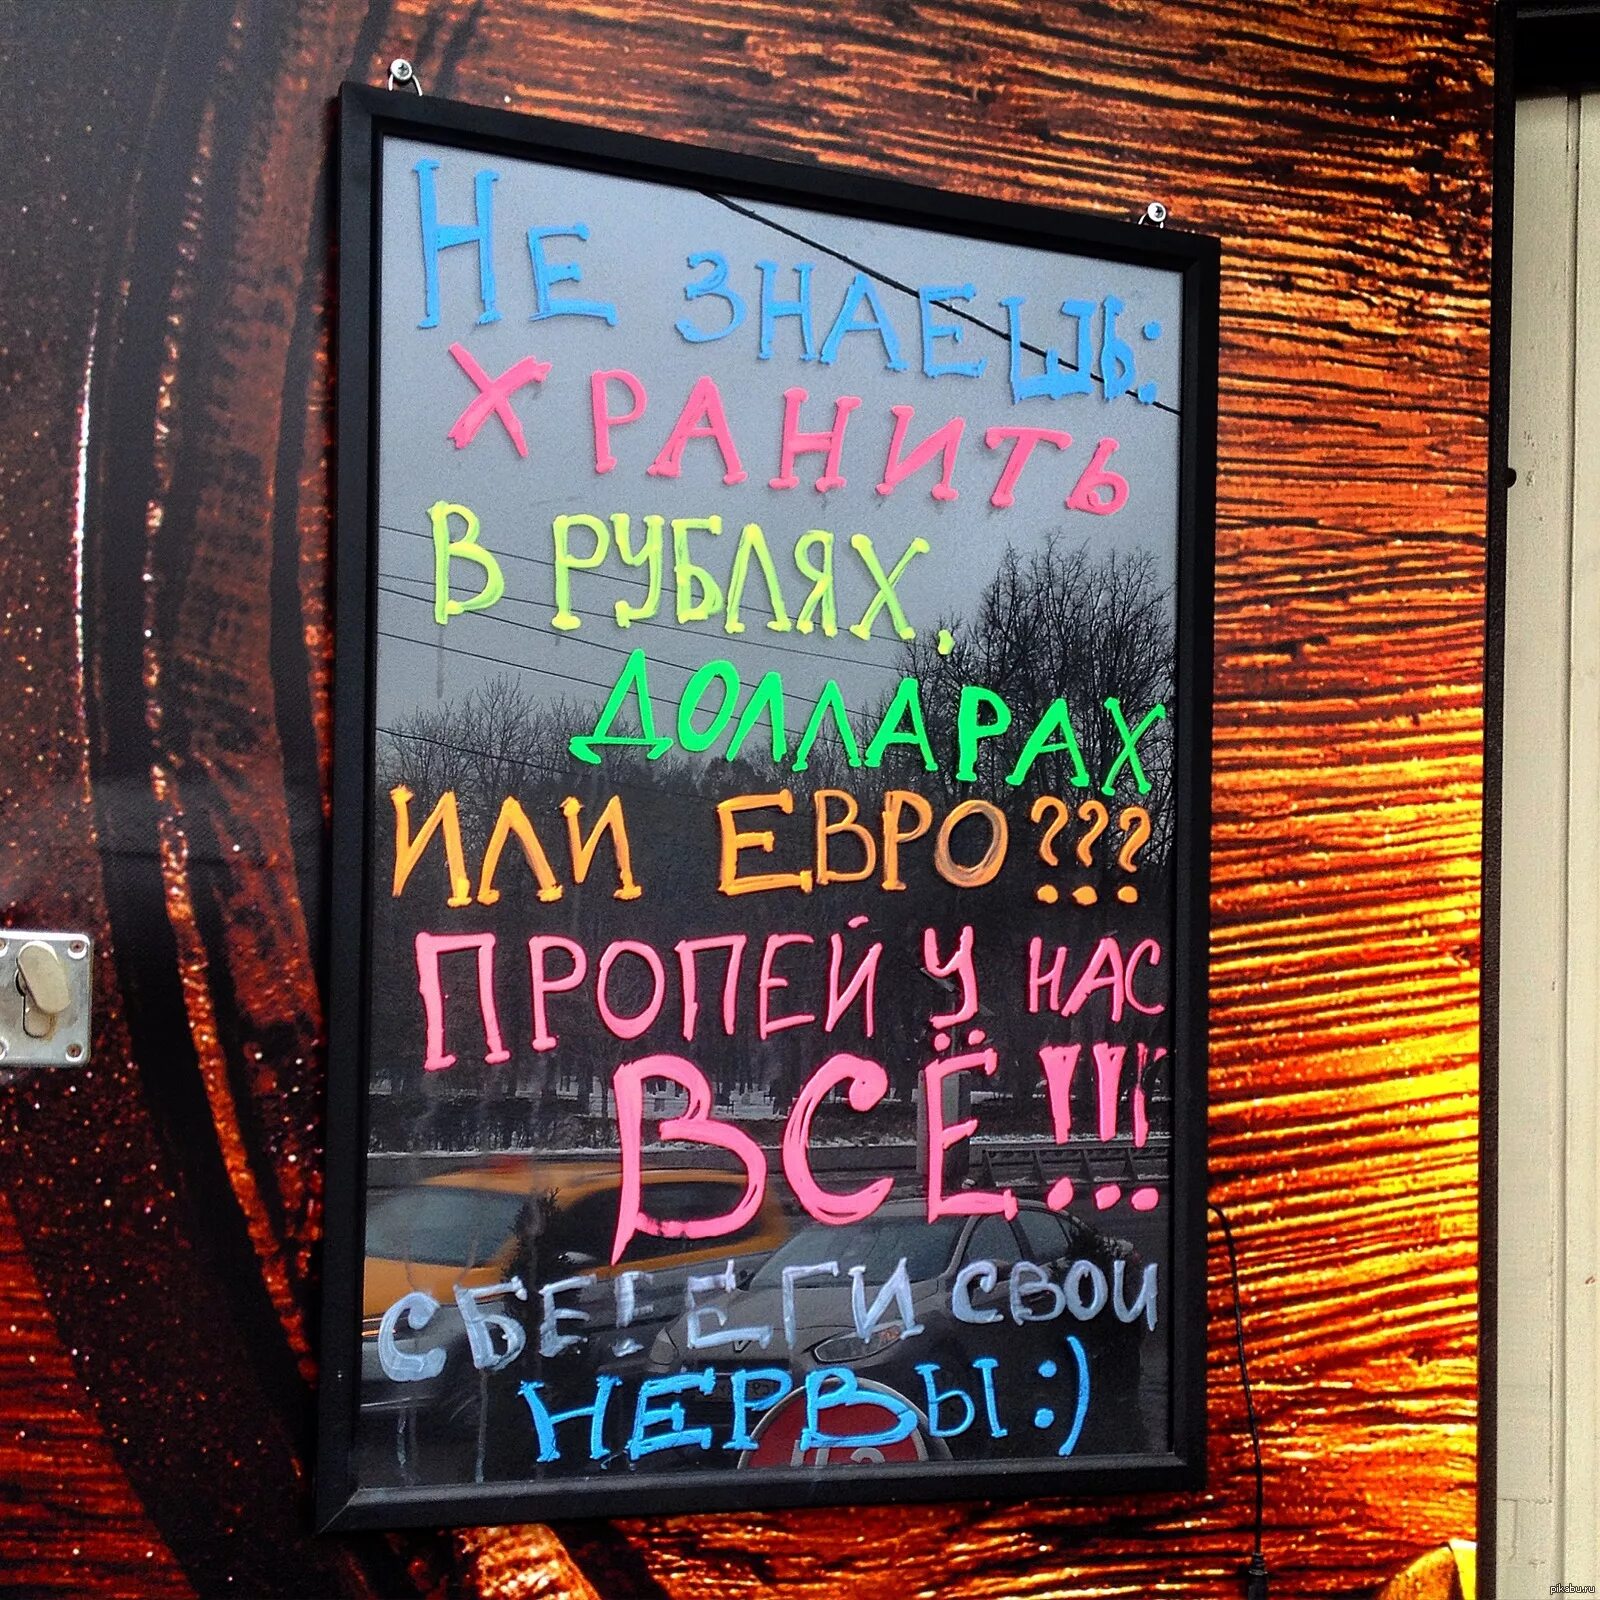 НЕ ЗНАЕШЬ:
ХРАНИТЬ
В РУБЛЯХ,
ДОЛЛАРАХ
ИЛИ ЕВРО???
ПРОПЕЙ У НАС
ВСЁ!!!
СБЕ!ЕГИ СВОИ
НЕРВЫ:)
pikabu.ru